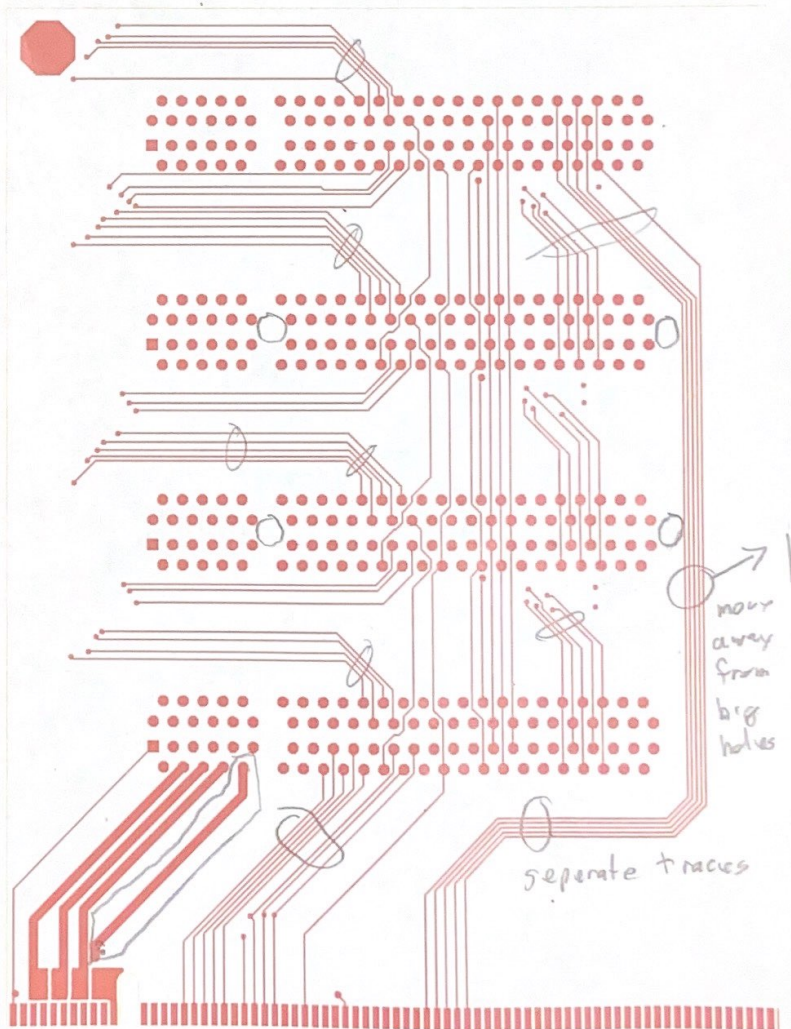 move
away
from
big
holes
seperate traces